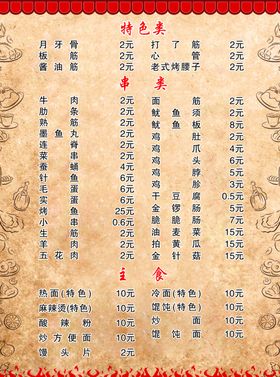 特色类
月牙骨 2元 打了筋 2元
板筋 2元 心管 2元
酱油筋 2元 老式烤腰子 2元
串类
牛肉 2元 面筋 2元
肋条 2元 鱿鱼须 2元
熟筋 2元 鱿鱼板 8元
墨鱼丸 2元 鸡肚 2元
连脊 2元 鸡爪 4元
菜串 2元 鸡头 6元
蚕蛹 4元 鸡胗 5元
针鱼 6元 鸡脖 5元
毛蛋 6元 鸡胗 3元
实蛋 6元 干豆腐 0.5元
烤鱼 25元 金锣肠 5元
小串 0.6元 脆脆肠 7元
生筋 2元 油麦菜 15元
羊肉 2元 拍黄瓜 15元
五花肉 2元 金针菇 15元
主食
热面(特色) 10元 冷面(特色) 10元
麻辣烫(特色) 10元 馄饨(特色) 10元
酸辣粉 10元 炒面 10元
炒方便面 10元 馄饨面 10元
馒头片 2元